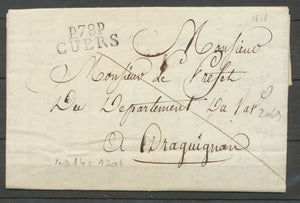 P78P
CUERS
1818
Monsieur
Monsieur le Prefet
Du Departement Du Var
A Draguignan